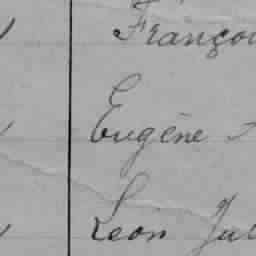 Françoi
Eugène
Léon Jul